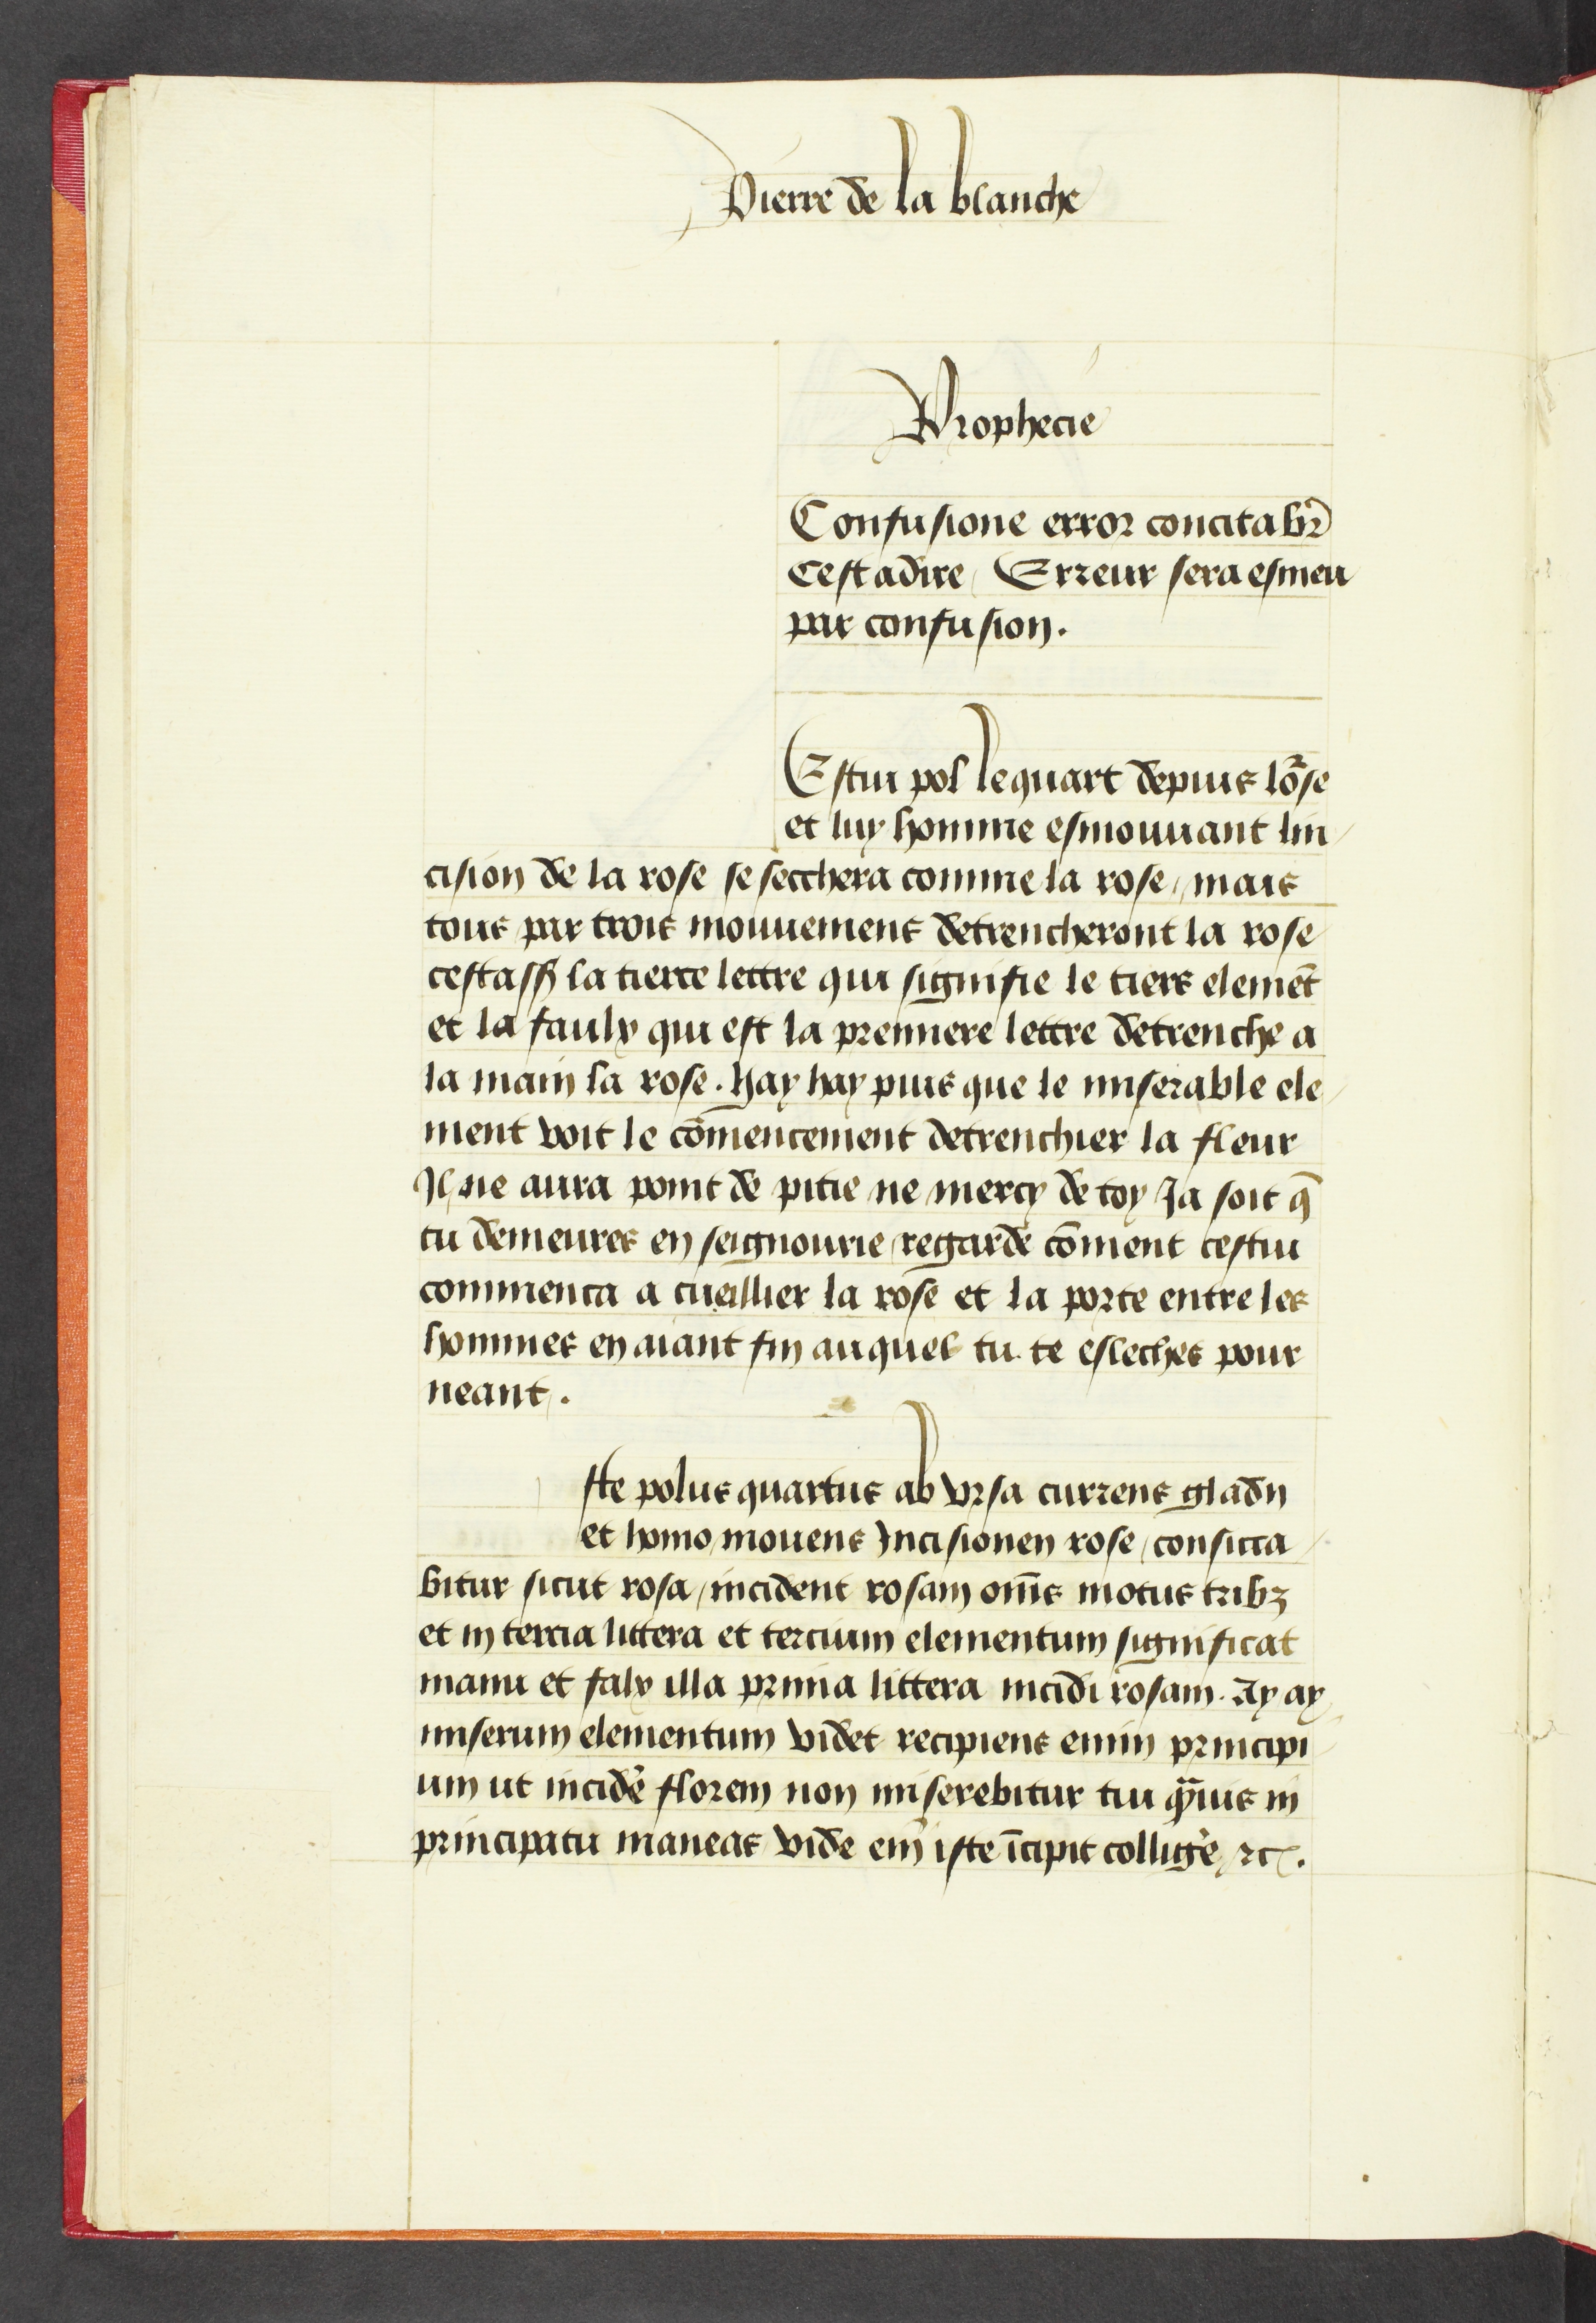 Pierre de la blanche
Prophecie
Confusione error concitabr̄
Cest adire / Erreur sera esmeu
par confusion.
Estui pol lequart depuis lo᷑se
et luy homme esmouuant lin
cision de la rose se secchera comme la rose / mais
tous par trois mouuemens detrencheront la rose
cestass̄ la tierce lettre qui signifie le tiers elemēt
et la faulx qui est la premiere lettre detrenche a
la main la rose. Hay hay puis que le miserable ele
ment voit le cōmencement detrenchier la fleur
Il ne aura point de pitie ne mercy de toy Ja soit q̄
tu demeures en seignourie / regarde cōment cestui
commenca a cueillier la rose et la porte entre les
hommes en aiant fin auquel tu te esleches pour
neant.
ste polus quartus ab vrsa currens gladii
et homo mouens Incisionem rose / consicca
bitur sicut rosa / incident rosam om̄s motus tribꝫ
et in tercia littera et tercium elementum significat
manu et falx illa prima littera incidi rosam. Ay ay
miserum elementum videt recipiens enim principi
um ut incidē florem non miserebitur tui q̄uis in
principatu maneas vide em̄ iste īcipit colligē / ⁊c.